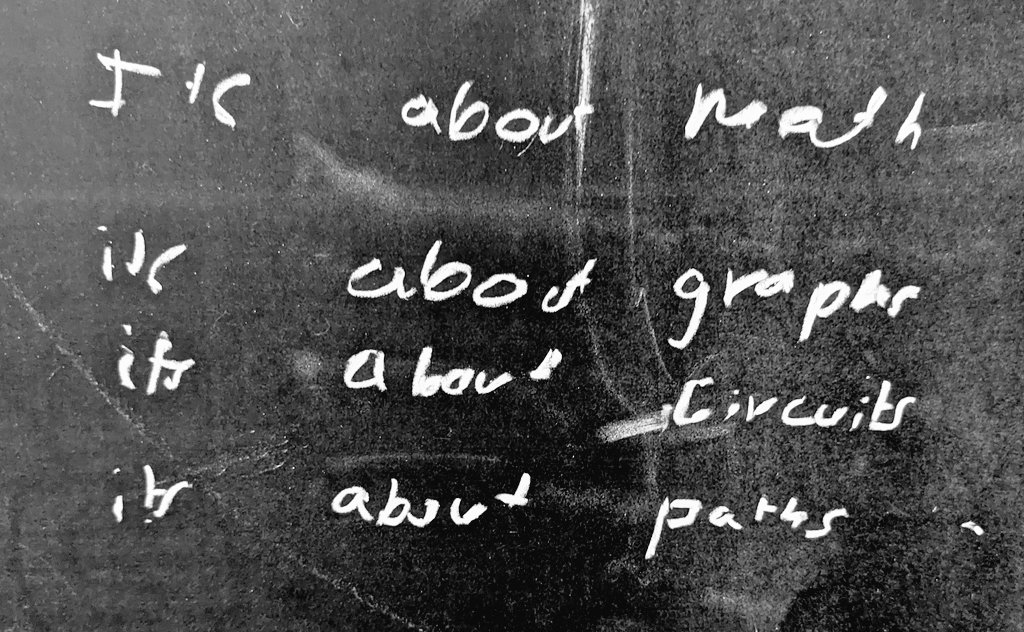 Its about math
its about graphs
its about Circuits
its about paths